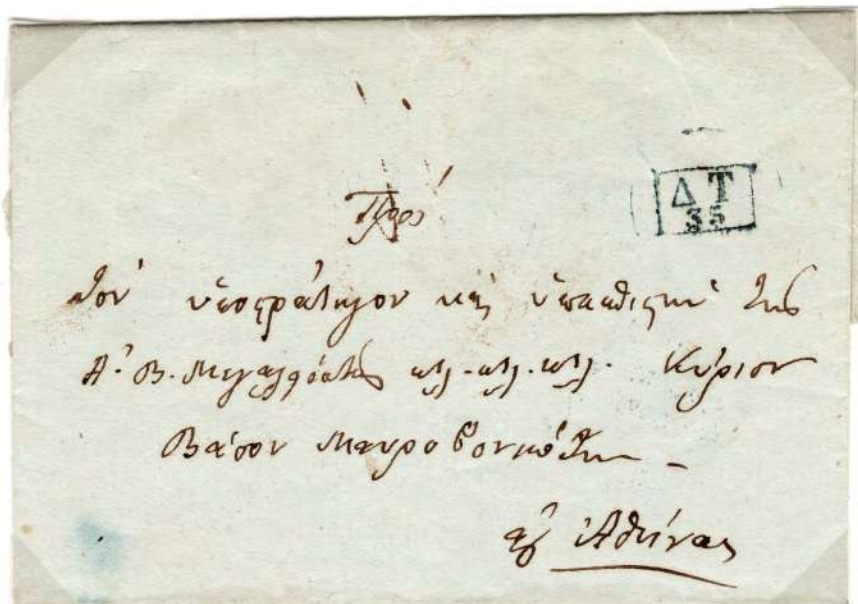 Δ Τ
35
Πρὸς
τὸν ὑποστράτηγον καὶ ὑπασπιστὴν τῆς
Α. Β. Μεγαλειότητος κτλ. κτλ. κτλ. Κύριον
Βάσον Μαυροβουνιώτην
εἰς Ἀθήνας